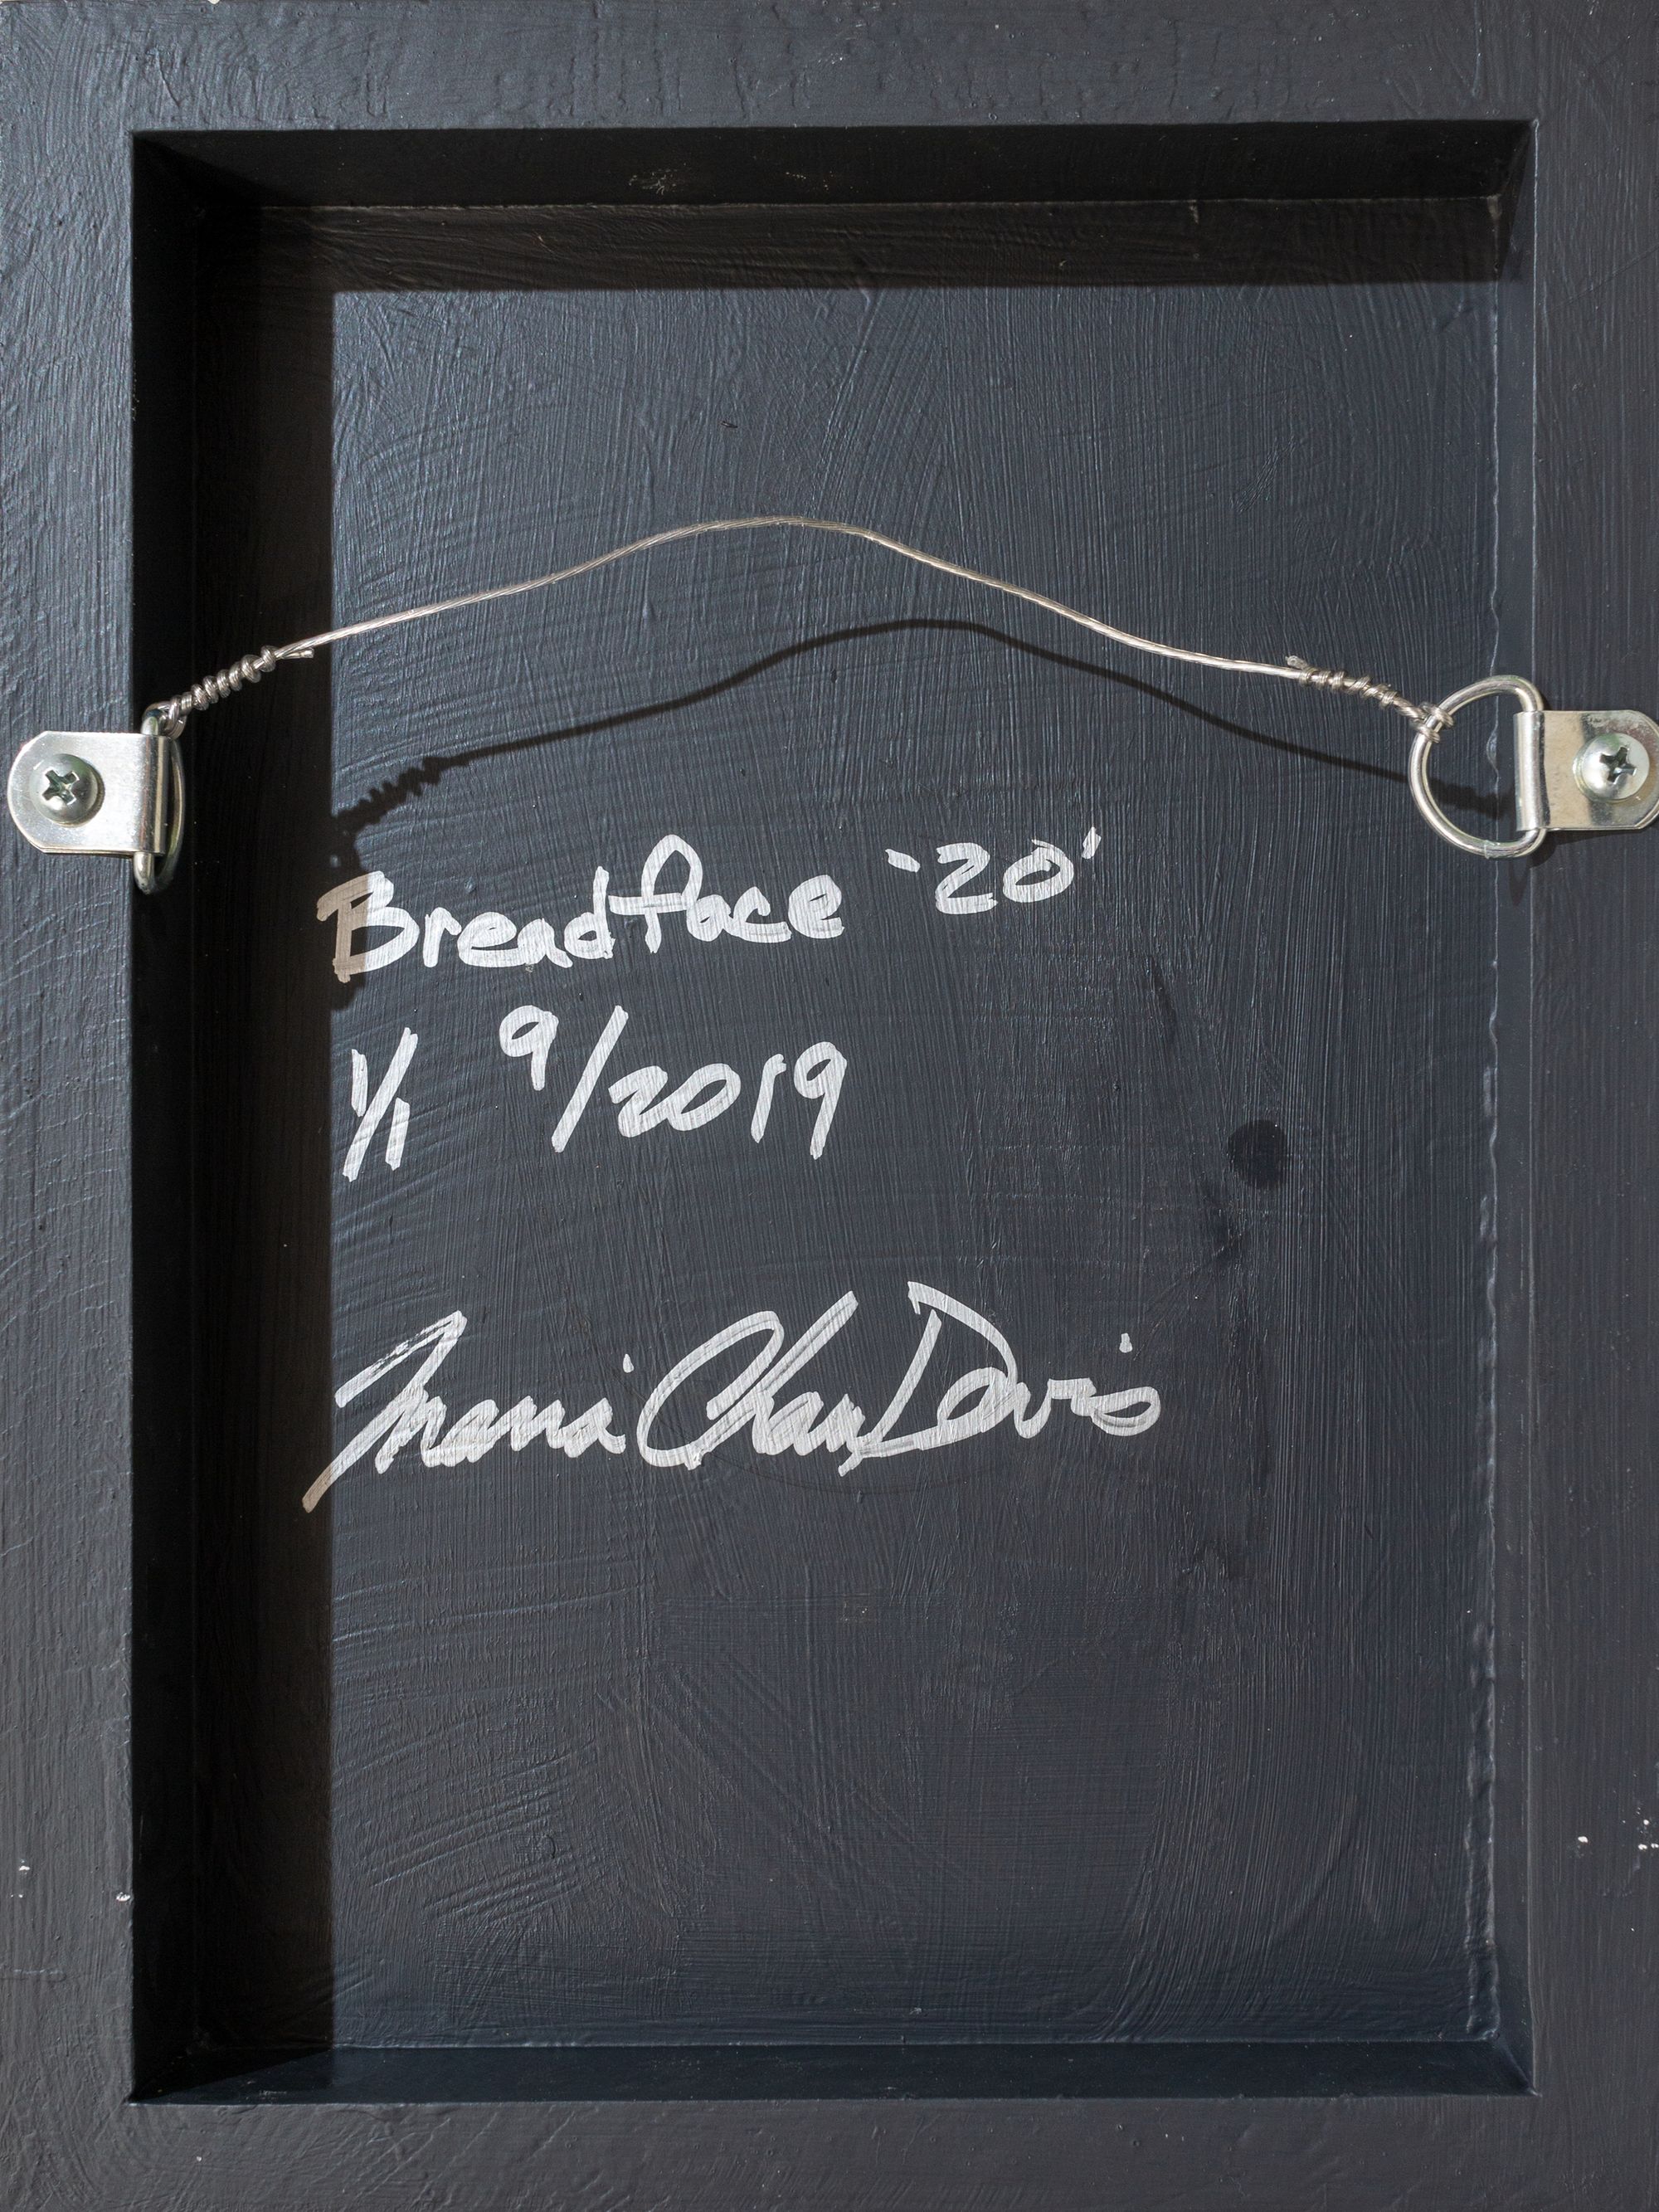 Breadface '20'
1/1 9/2019
Chan Davis